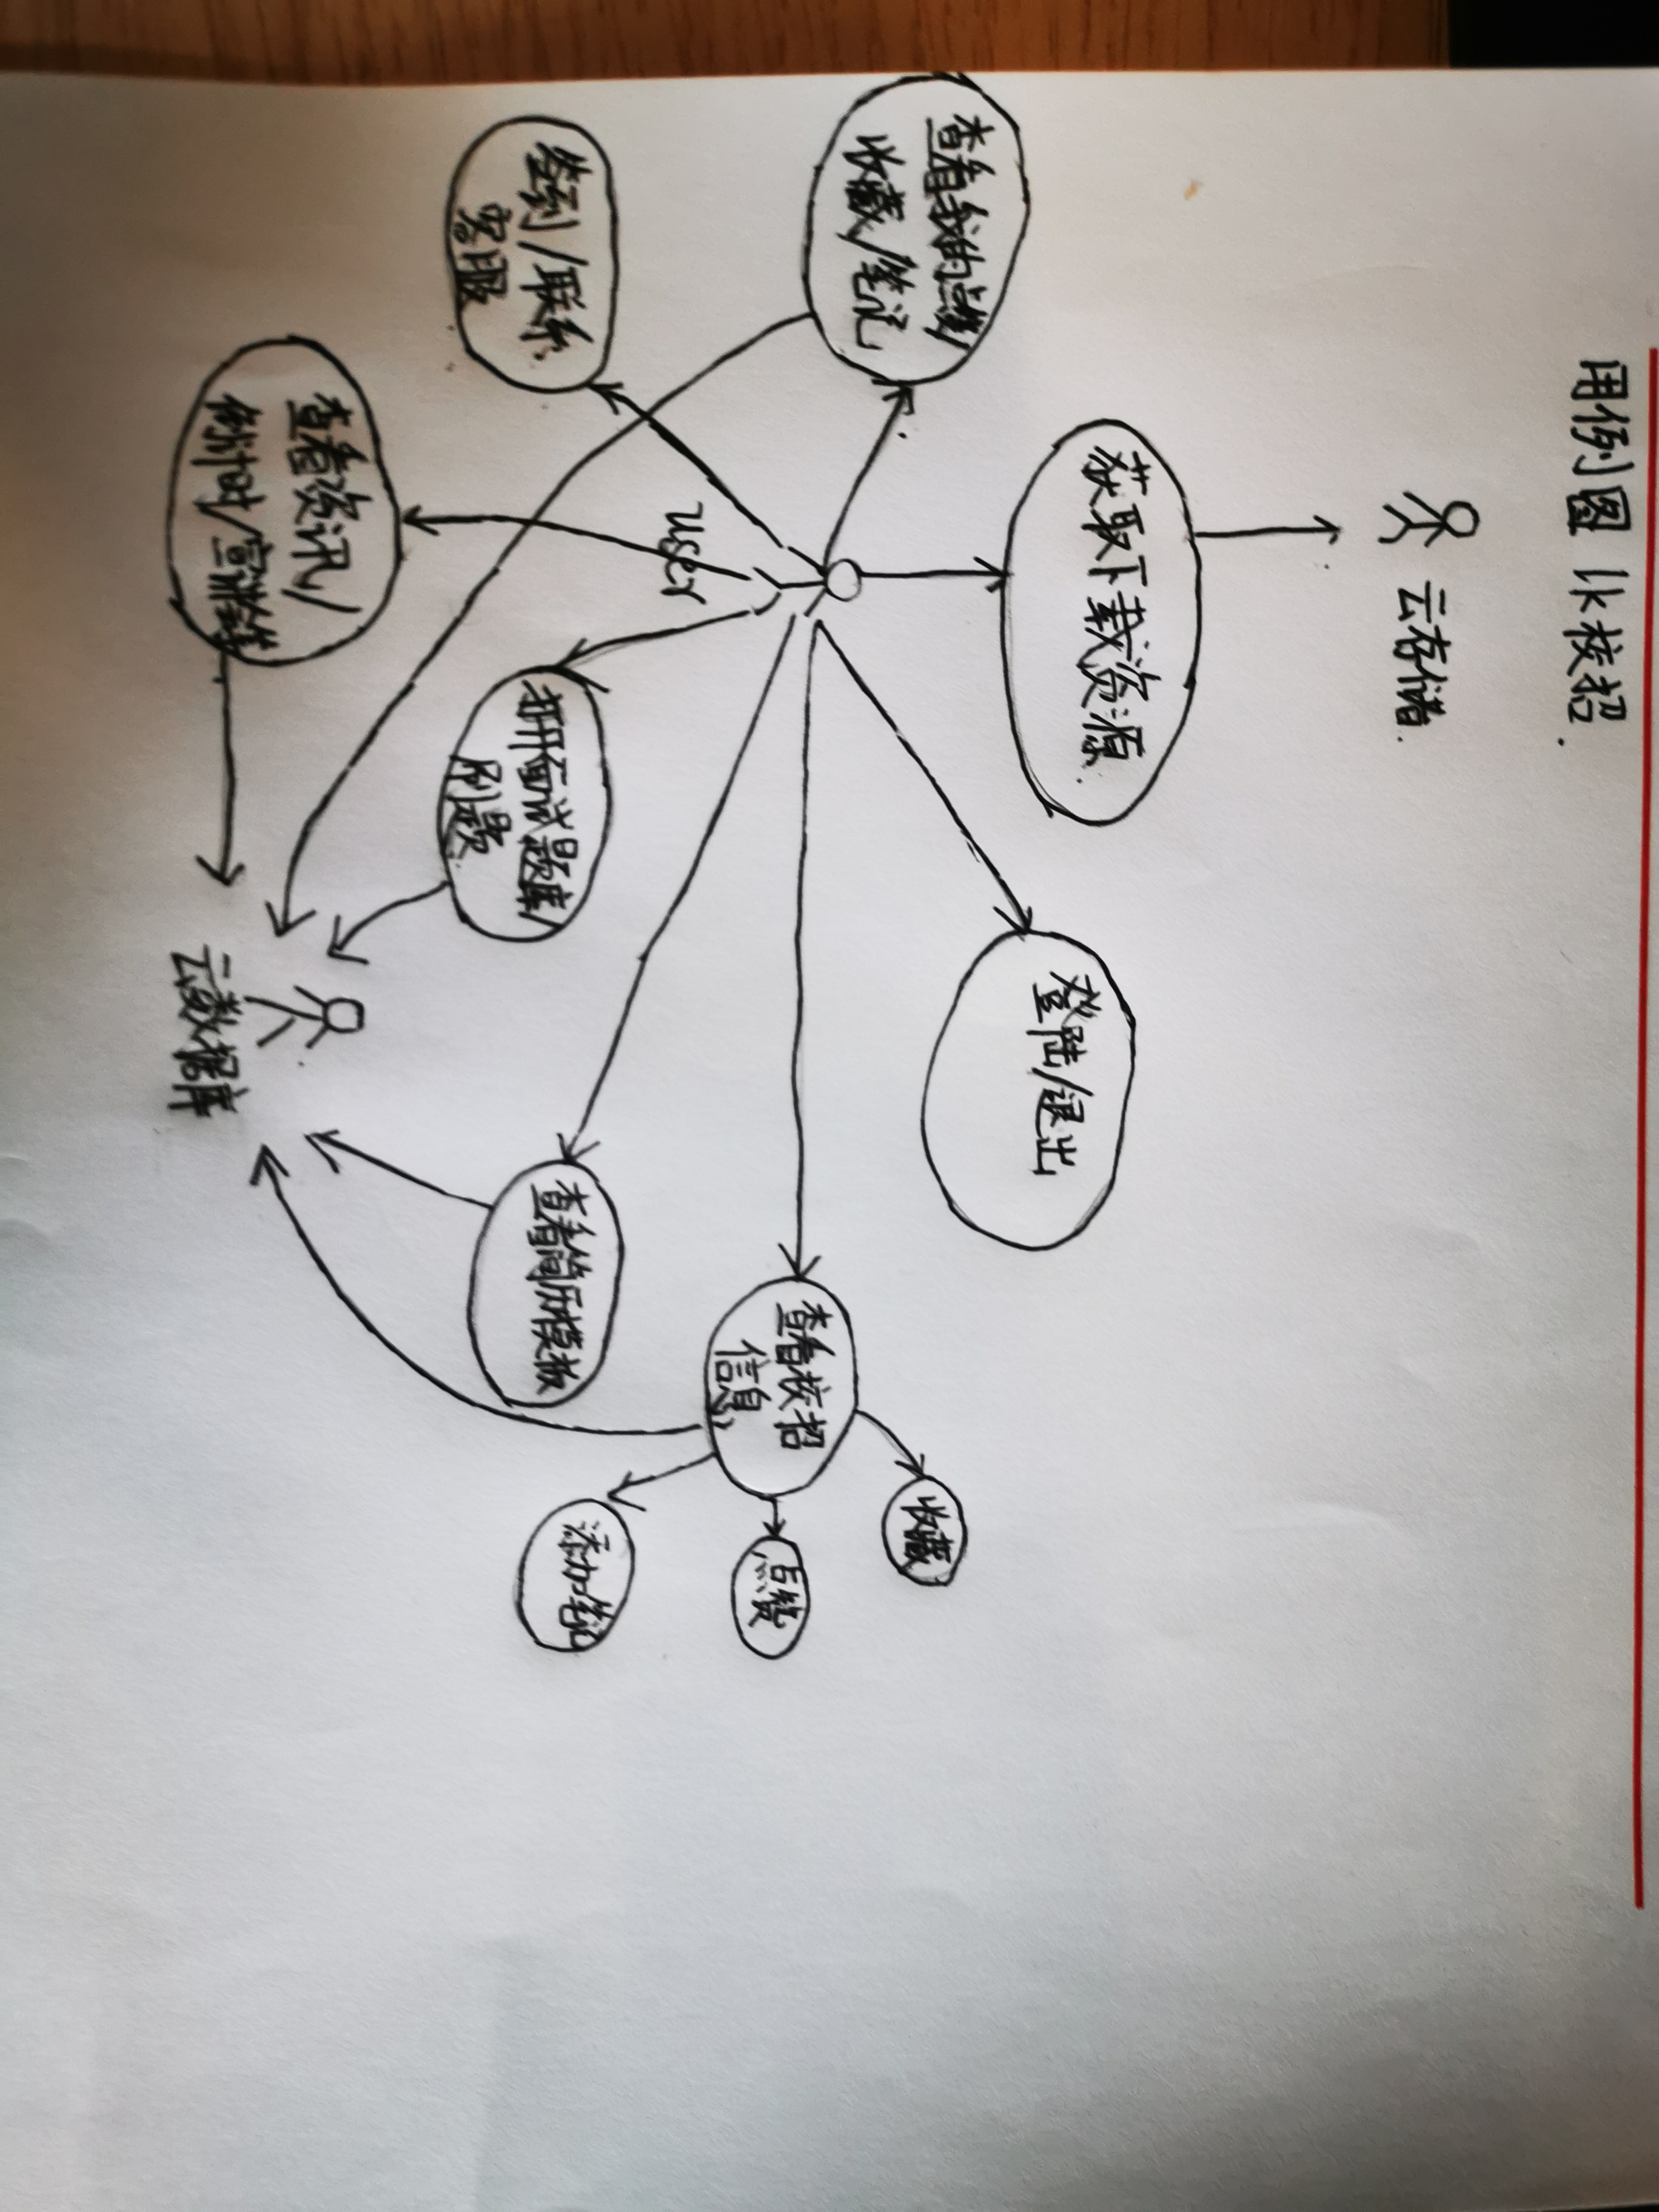 用例图 lk校招.
云存储.
获取下载资源.
登陆/退出
查看我的点赞/
收藏/笔记
收藏
查看校招
信息
点赞
user
添加笔记
签到/联系
客服
打开面试题库/
刷题.
查看简历模板
查看资讯/
倒计时/宣讲会等
云数据库